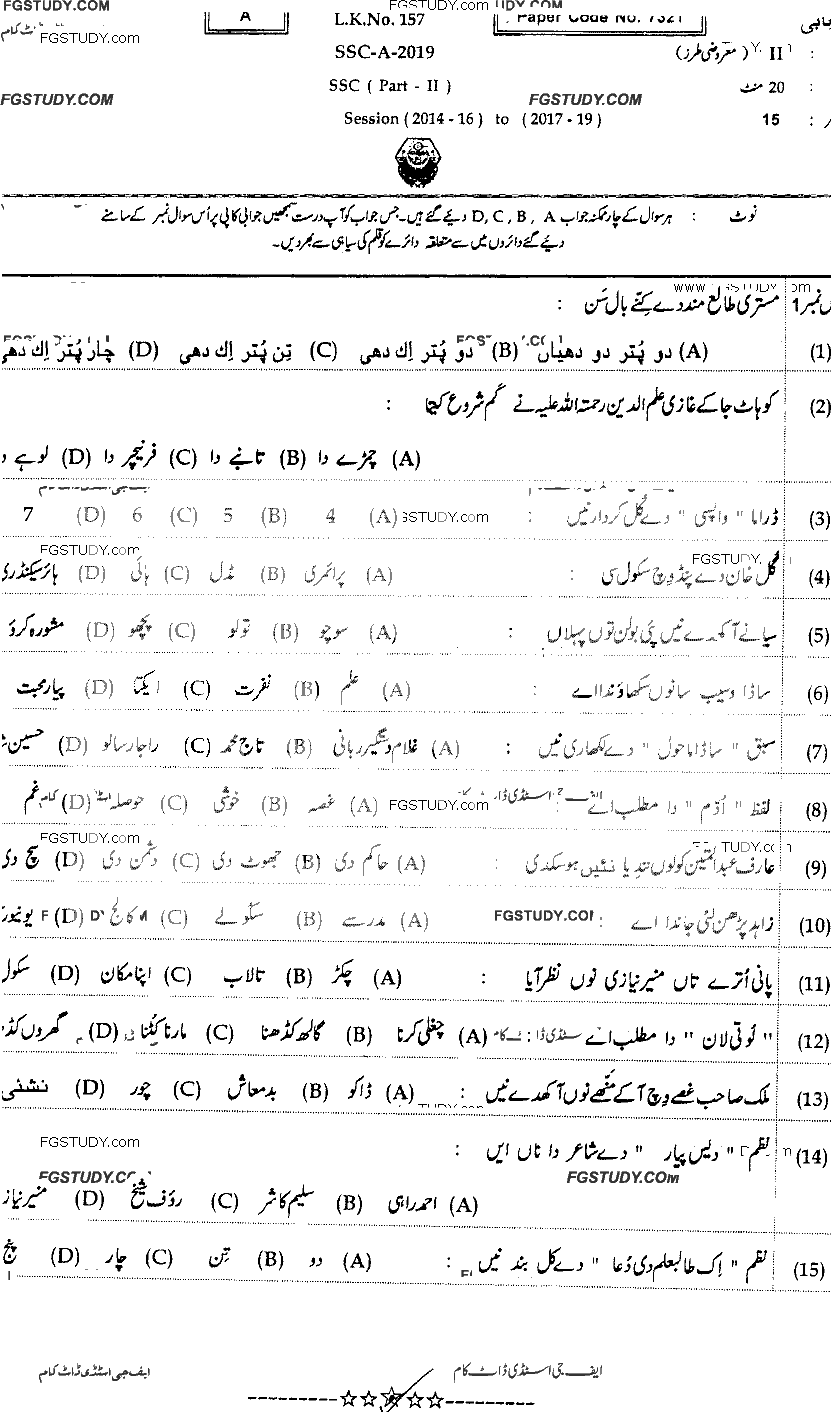 FGSTUDY.COM FGSTUDY.com
A L.K.No. 157 Paper Code No. 7321
FGSTUDY.com
SSC-A-2019 II ( معروضی طرز )
SSC ( Part - II ) 20 منٹ :
FGSTUDY.COM FGSTUDY.COM
Session ( 2014 - 16 ) to ( 2017 - 19 ) 15 :
نوٹ : ہر سوال کے چار ممکنہ جواب D, C, B, A دیئے گئے ہیں۔ جس جواب کو آپ درست سمجھیں جوابی کاپی پر اُس سوال نمبر کے سامنے
دیئے گئے دائروں میں سے متعلقہ دائرے کو قلم کی سیاہی سے بھر دیں۔
مستری طالع مند دے کِنّے بال سَن :
(1) (A) دو پُتر دو دھیاں (B) دو پُتر اِک دھی (C) تِن پُتر اِک دھی (D) چار پُتر اِک دھی
(2) کوہاٹ جا کے غازی علم الدین رحمتہ اللہ علیہ نے کَم شروع کیتا :
(A) چمڑے دا (B) تانبے دا (C) فرنیچر دا (D) لوہے
(3) ڈراما " واپسی " دے کُل کردار نیں : FGSTUDY.com (A) 4 (B) 5 (C) 6 (D) 7
FGSTUDY.com FGSTUDY.
(4) گُل خان دے پنڈ وچ سکول سی : (A) پرائمری (B) مڈل (C) ہائی (D) ہائر سیکنڈری
(5) سیانے آکھدے نیں پئی بولن توں پہلاں : (A) سوچو (B) تولو (C) پُچھو (D) مشورہ کرو
(6) ساڈا وسیب سانوں سکھاؤندا اے : (A) علم (B) نفرت (C) ایکتا (D) پیار محبت
(7) سبق " ساڈا ماحول " دے لکھاری نیں : (A) غلام دستگیر ربانی (B) تاج محمد (C) راجا رسالو (D) حسین
(8) لفظ " اُدّم " دا مطلب اے FGSTUDY.com (A) غصہ (B) خوشی (C) حوصلہ (D) غم
FGSTUDY.com
(9) عارف عبدالمتین کولوں تدیا نئیں ہو سکدی : (A) حاکم دی (B) جھوٹ دی (C) دشمن دی (D) سچ دی
(10) زاہد پڑھن لئی جاندا اے : FGSTUDY.COM (A) مدرسے (B) سکولے (C) کالج (D)
(11) پانی اُترے تاں منیر نیازی نوں نظر آیا : (A) چکڑ (B) تالاب (C) اپنا مکان (D) سکول
(12) " لُوتی لان " دا مطلب اے : (A) چغلی کرنا (B) گالھ کڈھنا (C) مارنا کُٹنا (D) گھروں
(13) ملک صاحب غصے وچ آ کے مُٹھے نوں آکھدے نیں : (A) ڈاکو (B) بدمعاش (C) چور (D) نشئی
FGSTUDY.com
(14) نظم " دیس پیار " دے شاعر دا ناں ایں :
FGSTUDY.COM FGSTUDY.COm
(A) احمد راہی (B) سلیم کاشر (C) رؤف شیخ (D) منیر نیازی
(15) نظم " اِک طالبعلم دی دُعا " دے کل بند نیں : (A) دو (B) تِن (C) چار (D) پنج
ایف جی اسٹڈی ڈاٹ کام ایف جی اسٹڈی ڈاٹ کام